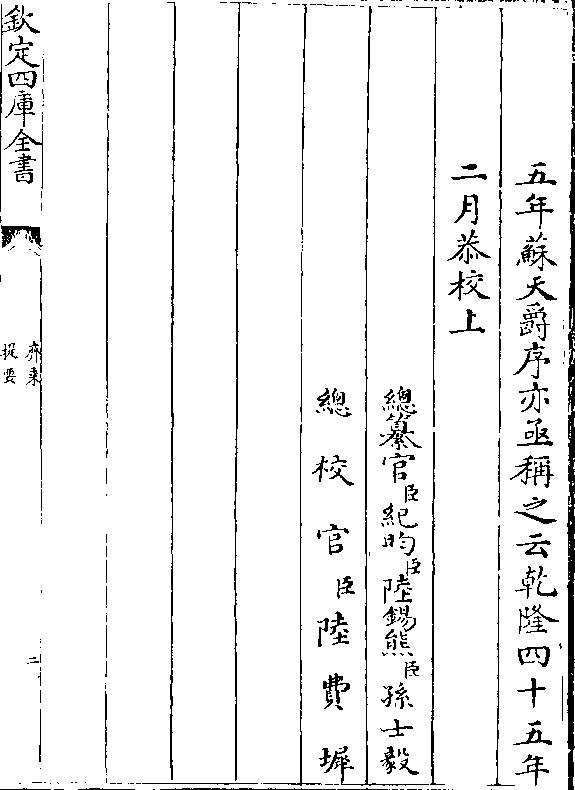 五年蘇天爵序亦亟稱之云乾隆四十五年
二月恭校上
總纂官臣紀昀臣陸錫熊臣孫士毅
總校官臣陸費墀
欽定四庫全書
齊乘
提要
二